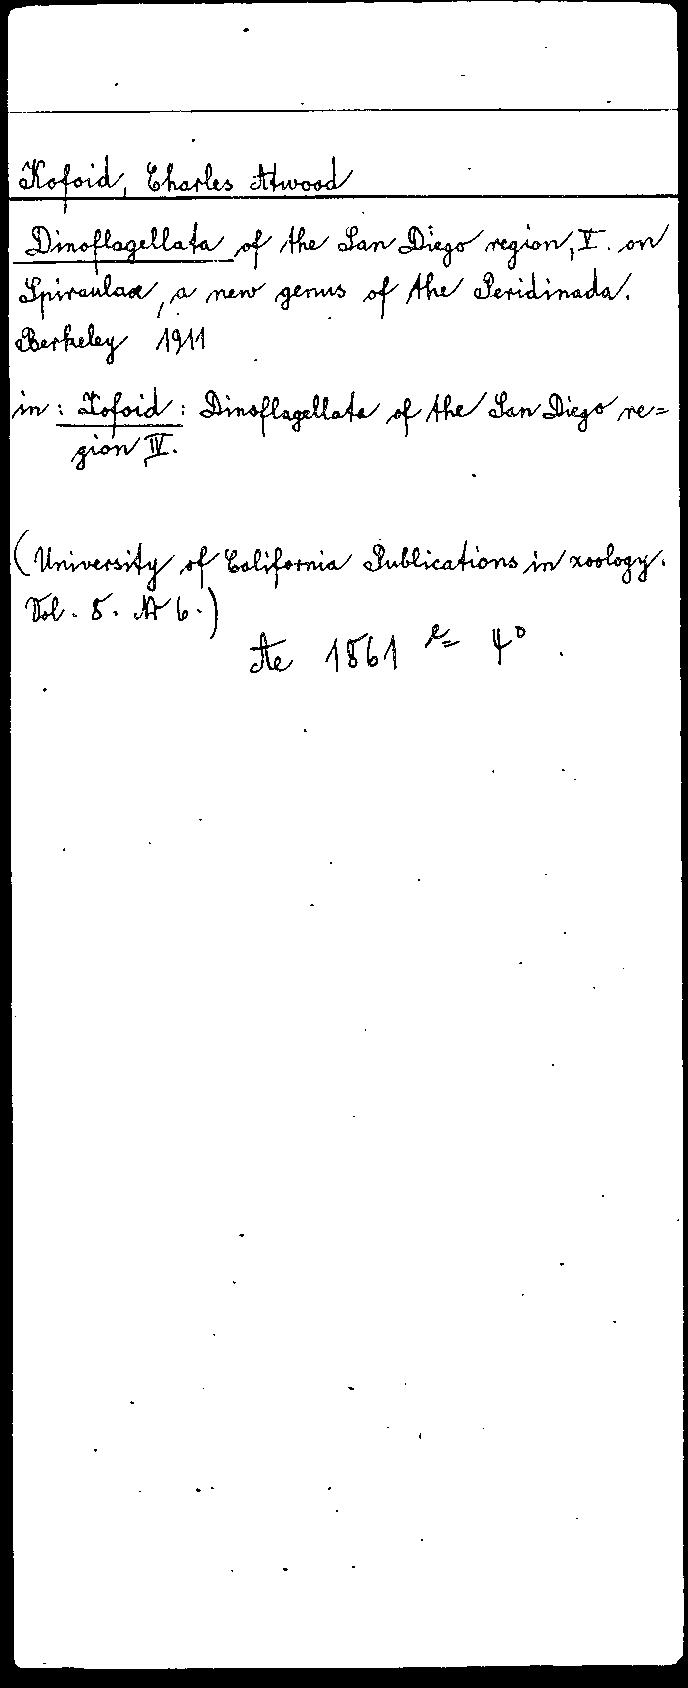 Kofoid, Charles Atwood
Dinoflagellata of the San Diego region, V. on
Spiraulax, a new genus of the Peridinada.
Berkeley 1911
in: Kofoid: Dinoflagellata of the San Diego re=
gion IV.
(University of California Publications in zoology.
Vol. 8. № 6.)
Ae 1861 4°